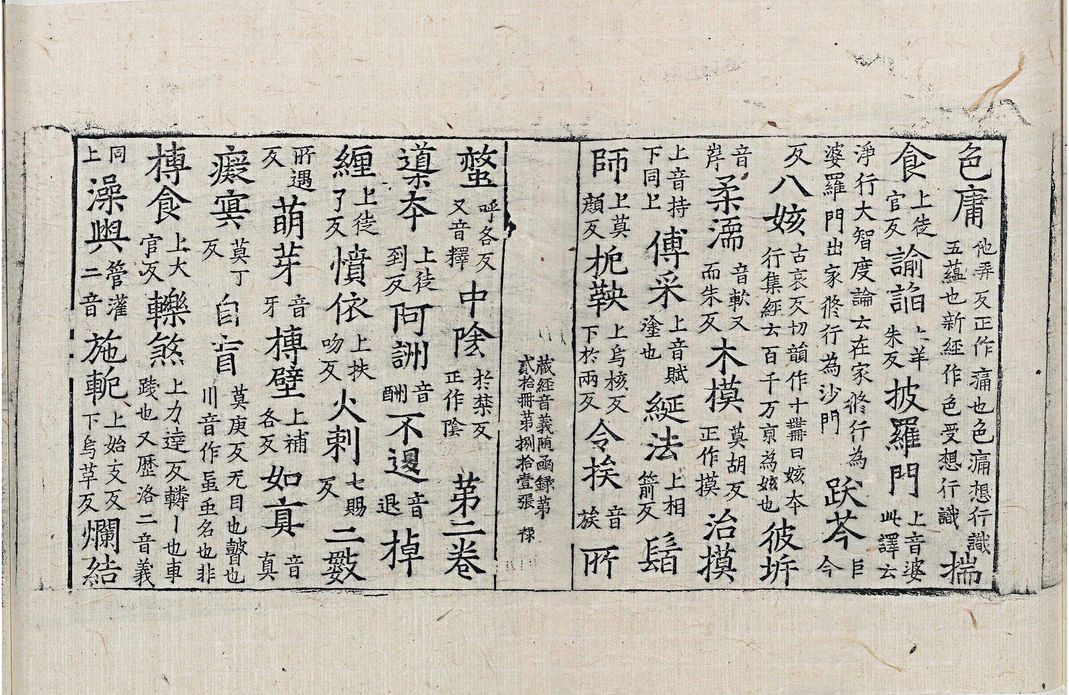 色痛他弄反正作痛也色痛想行識五蘊也新經作色受想行識揣
食上徒官反諭諂上羊朱反披羅門上音婆此譯云
淨行大智度論云在家修行為婆羅門出家修行為沙門趺芩巨今
反八姟古哀反切韻作十兆曰姟夲行集經云百千万京為姟也彼坼
音芹柔濡音軟又而朱反木模莫胡反正作摸治摸
上音持下同上傅采上音賦塗也綖法上相箭反髾
師上莫顏反枙鞅上烏核反下於兩反令挨音族所
藏經音義随函録第
貳拾冊第捌拾壹張 禄
螫呼各反又音釋中陰於禁反正作陰第二卷
䆃夲上徒到反阿詶音酬不邊音退掉
纒上徒了反憤依上扶吻反火刺七賜反二數
所遇反萌芽音牙榑壁上補各反如真音真
癡㝠莫丁反自盲莫庚反无目也瞽也川音作虽䖟名也非
榑食上大官反轢煞上力逹反轔丨也車踐也又歷洛二音義
同上澡與管灌二音施軶上始攴反下烏革反爛結